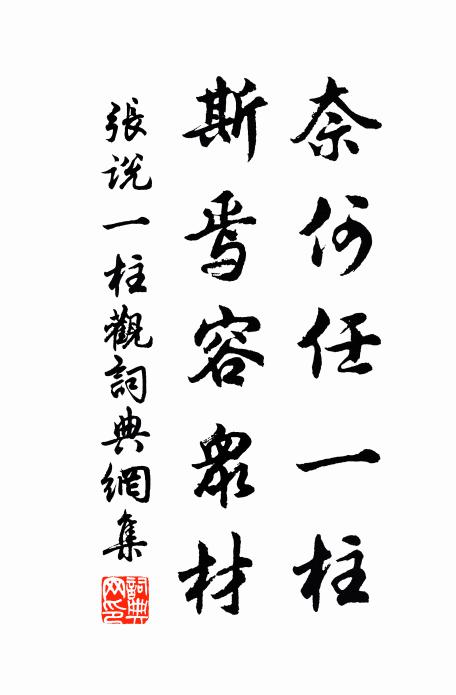 奈何任一柱
斯焉容眾材
張說一柱觀詞典網集
詞典网印